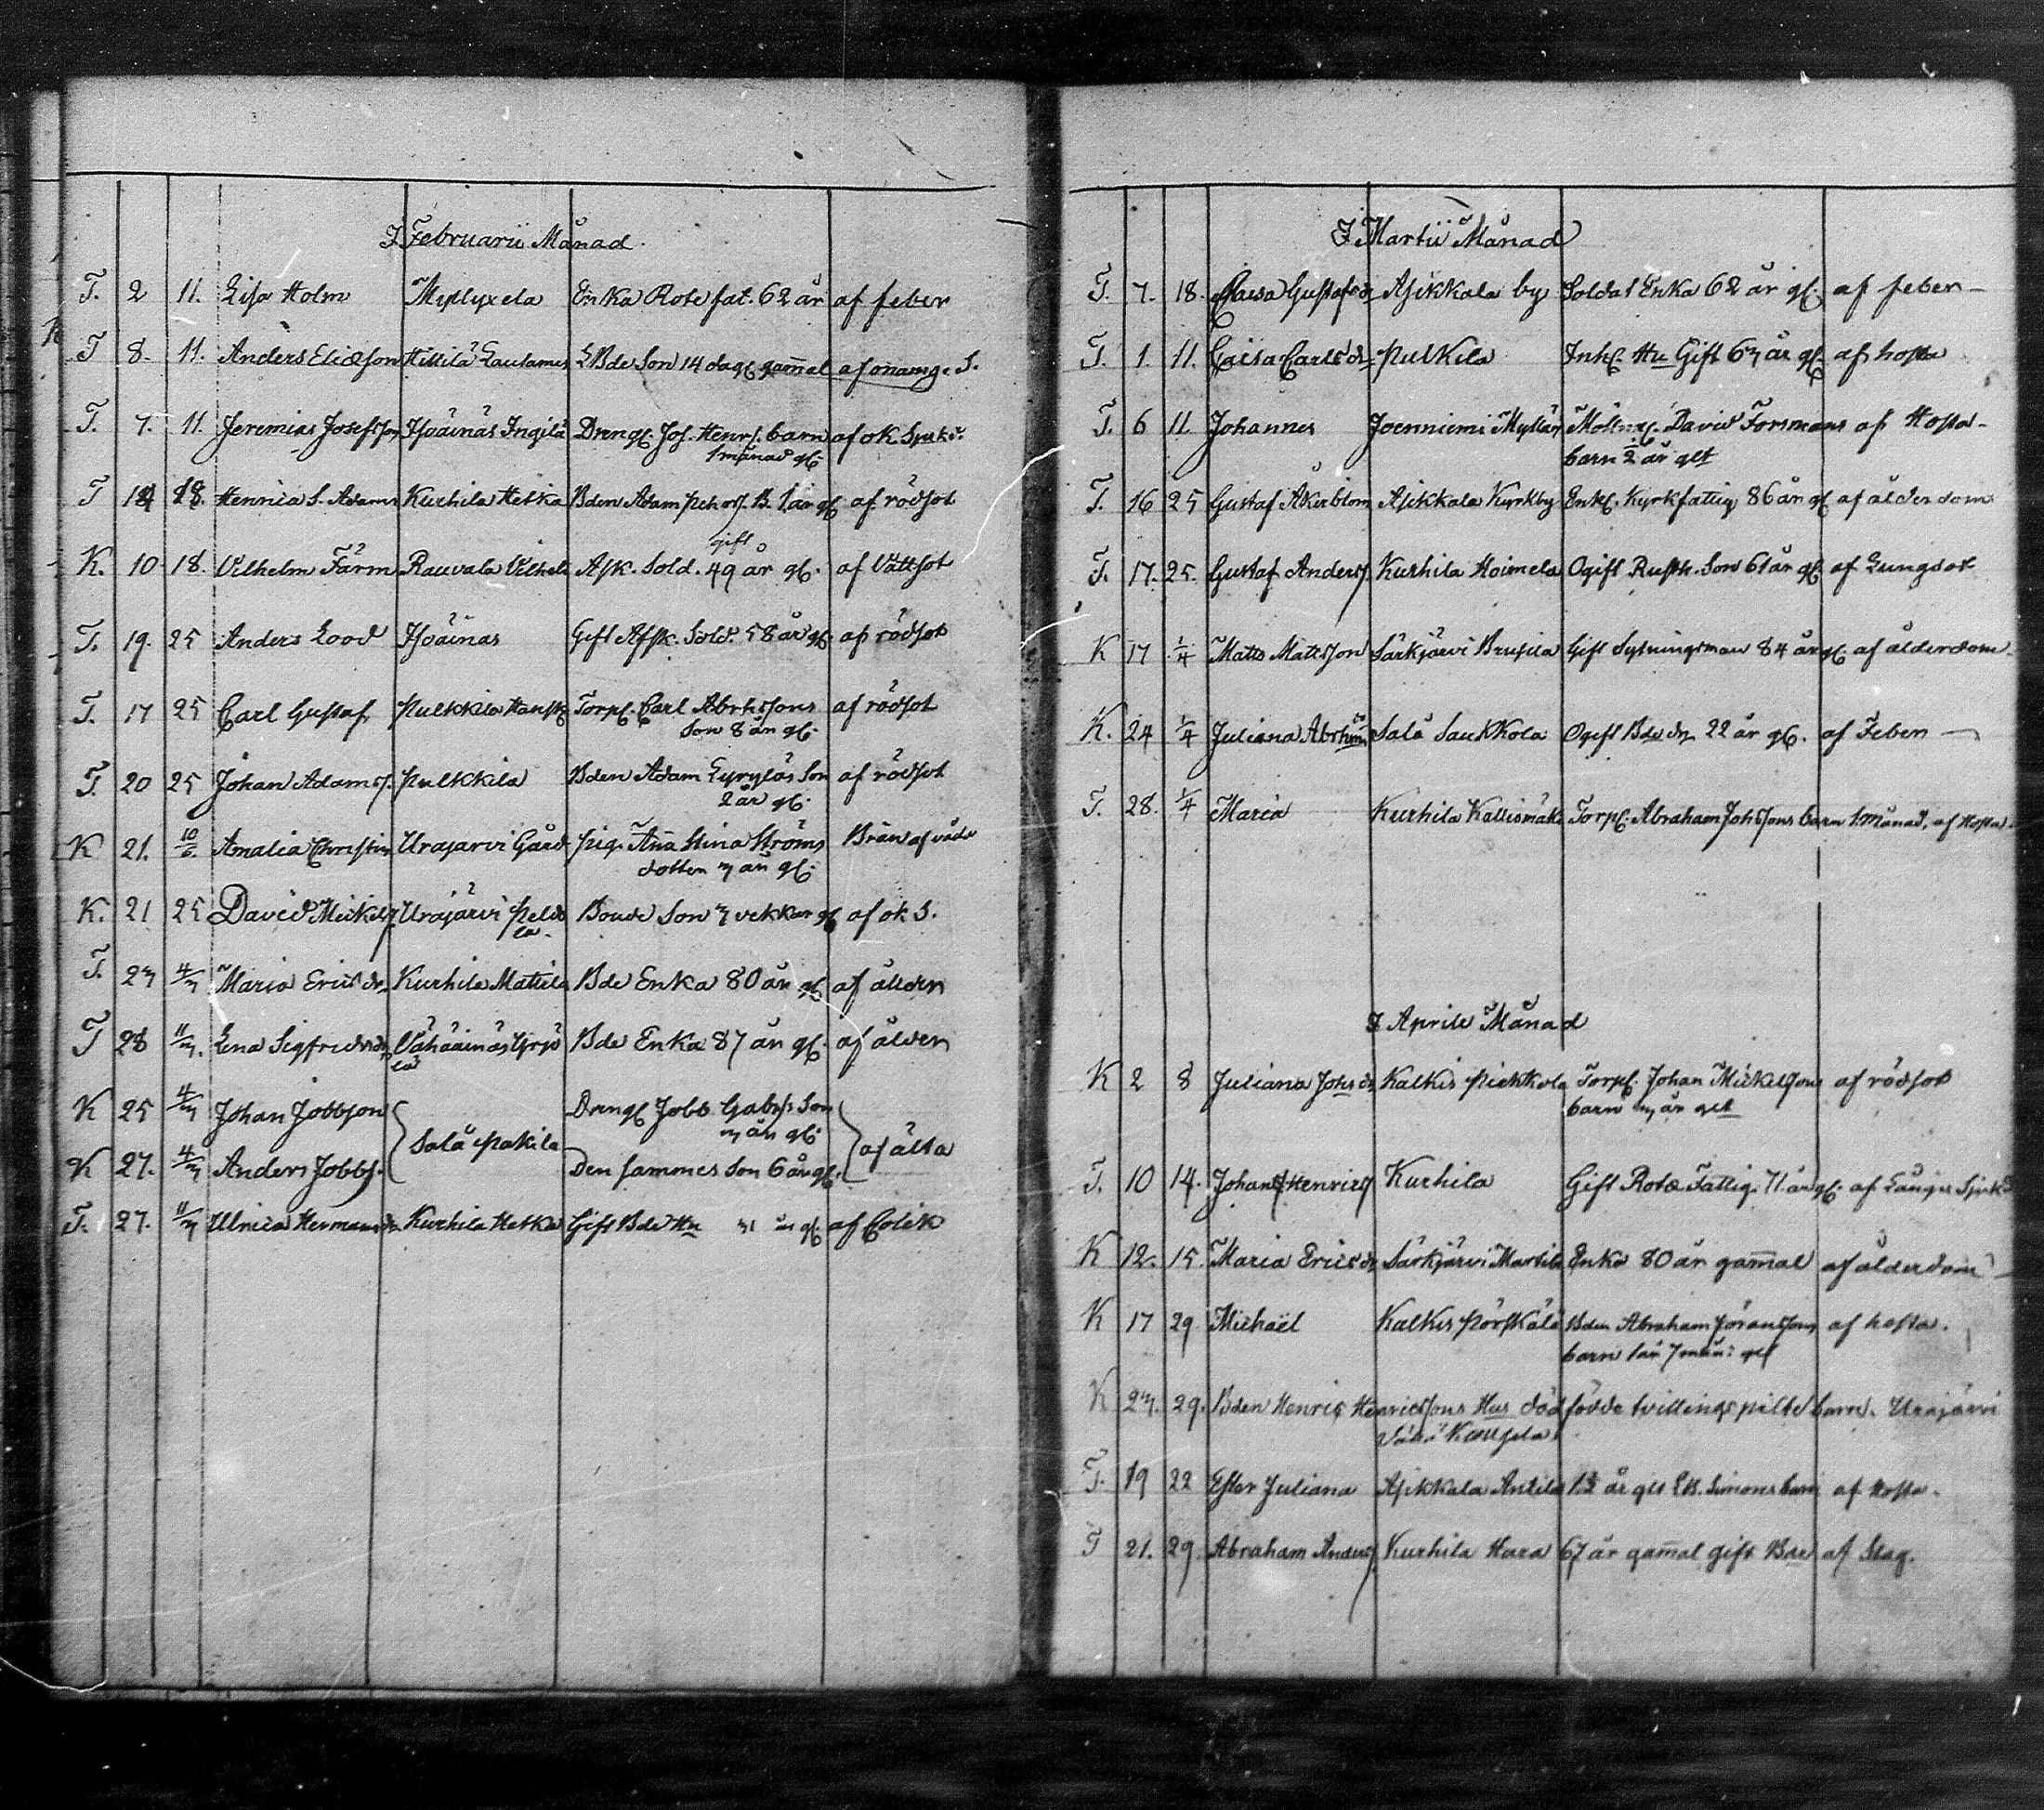 I Februarii Månad.
T. 2 11. Lisa Holm Myllyxela Enka Rote fat. 62 år af feber
T 8. 11. Anders Eliæson Hillilä Lautamies LBde Son 14 dag gammal af onämg. S.
T. 7. 11. Jeremias Josefsson Isoäinäs Ingilä Dreng. Jos. Henrs. barn af ok Sjukd.
1 månad gl.
T 14 18. Henrica S. Adams Kurhila Heika Bden Adam Pehrs. B. 1 år gl af rödsot
gift
K. 10 18. Vilhelm Färm Rauvala Vilkela Afsk. Sold. 49 år gl. af Vattsot
T. 19. 25 Anders Lood Isoäinas Gift Afsk. Sold. 58 år gl. af rödsot
T. 17 25 Carl Gustaf Pulkkila Torp. Carl Abrhssons af rödsot
Son 8 år gl.
T. 20 25 Johan Adams. Pulkkila Bden Adam Lyryläs Son af rödsot
2 år gl.
K 21. 10/6. Amalia Christin Urajärvi Gård Pig. Anna Stina Ströms Brän af våda
dotter 3 år gl.
K. 21 25 David Mickels. Urajärvi Peldo Bonde Son 3 vekkor gl af ok S.
la.
T. 23 4/3 Maria Ericsdr Kurhila Mattila Bde Enka 80 år gl af ålder
T 28 11/3. Lena Sigfridsdr Vähäinäs Yrjö Bde Enka 87 år gl. af ålder
lä
K 25 4/3 Johan Jobbson Dreng Jobb Gabrs. Son
3 år gl.
Salå Pakila af älta
K 27. 4/3 Anders Jobbs. Den sammes Son 6 år gl.
T. 27. 11/3 Ulrica Hermansdr Kurhila Heika Gift Bde Hu 31 år gl. af Colik
I Martii Månad
T. 7. 18. Caisa Gustafsdr Asikkala by Soldat Enka 62 år gl. af feber
T. 1. 11. Caisa Carlsdr Pulkila Inh. Hu Gift 63 år gl. af hosta
T. 6 11. Johannes Joenniemi Myllär Mölnar. David Forsmans af Hosta
barn 2 år glt
T. 16 25 Gustaf Åkerblom Asikkala Kyrkby Enkl. Kyrkfattig 86 år gl af ålderdom
T. 17. 25. Gustaf Anders. Kurhila Hoimela Ogift Rusth. Son 61 år gl. af Lungsot
K 17 1/4 Matts Mattsson Särkjärvi Brusila Gift Sytningsman 84 år gl. af ålderdom
K. 24 1/4 Juliana Abrhms Salå Saukkola Ogift Bde dr 22 år gl. af Feber
T. 28. 1/4 Maria Kurhila Kallismäki Torp. Abraham Johssons barn 1 månad, af Hosta
I Aprile Månad
K 2 8 Juliana Johsdr Kalkis Pickkola Torp. Johan Mickelssons af rödsot
barn 3 år glt
T. 10 14. Johan Henrics Kurhila Gift Rote Fattig. 71 år gl. af Långer Sjukd
K 12. 15. Maria Ericsdr Särkjärvi Martila Enka 80 år gammal af ålderdom
K 17 29 Michaël Kalkis Pörskälä Bden Abraham Göranssons af hosta.
barn 1 år 7 mån: glt
K 23. 29. Bden Henric Henricssons Hus dödfödde tvillings piltebarn. Urajärvi
Vähä Kauppila
T. 19 22 Ester Juliana Asikkala Antila 1½ år glt LB. Simons barn af Hosta.
T 21. 29. Abraham Anders Kurhila Hara 67 år gammal gift Bde af Slag.